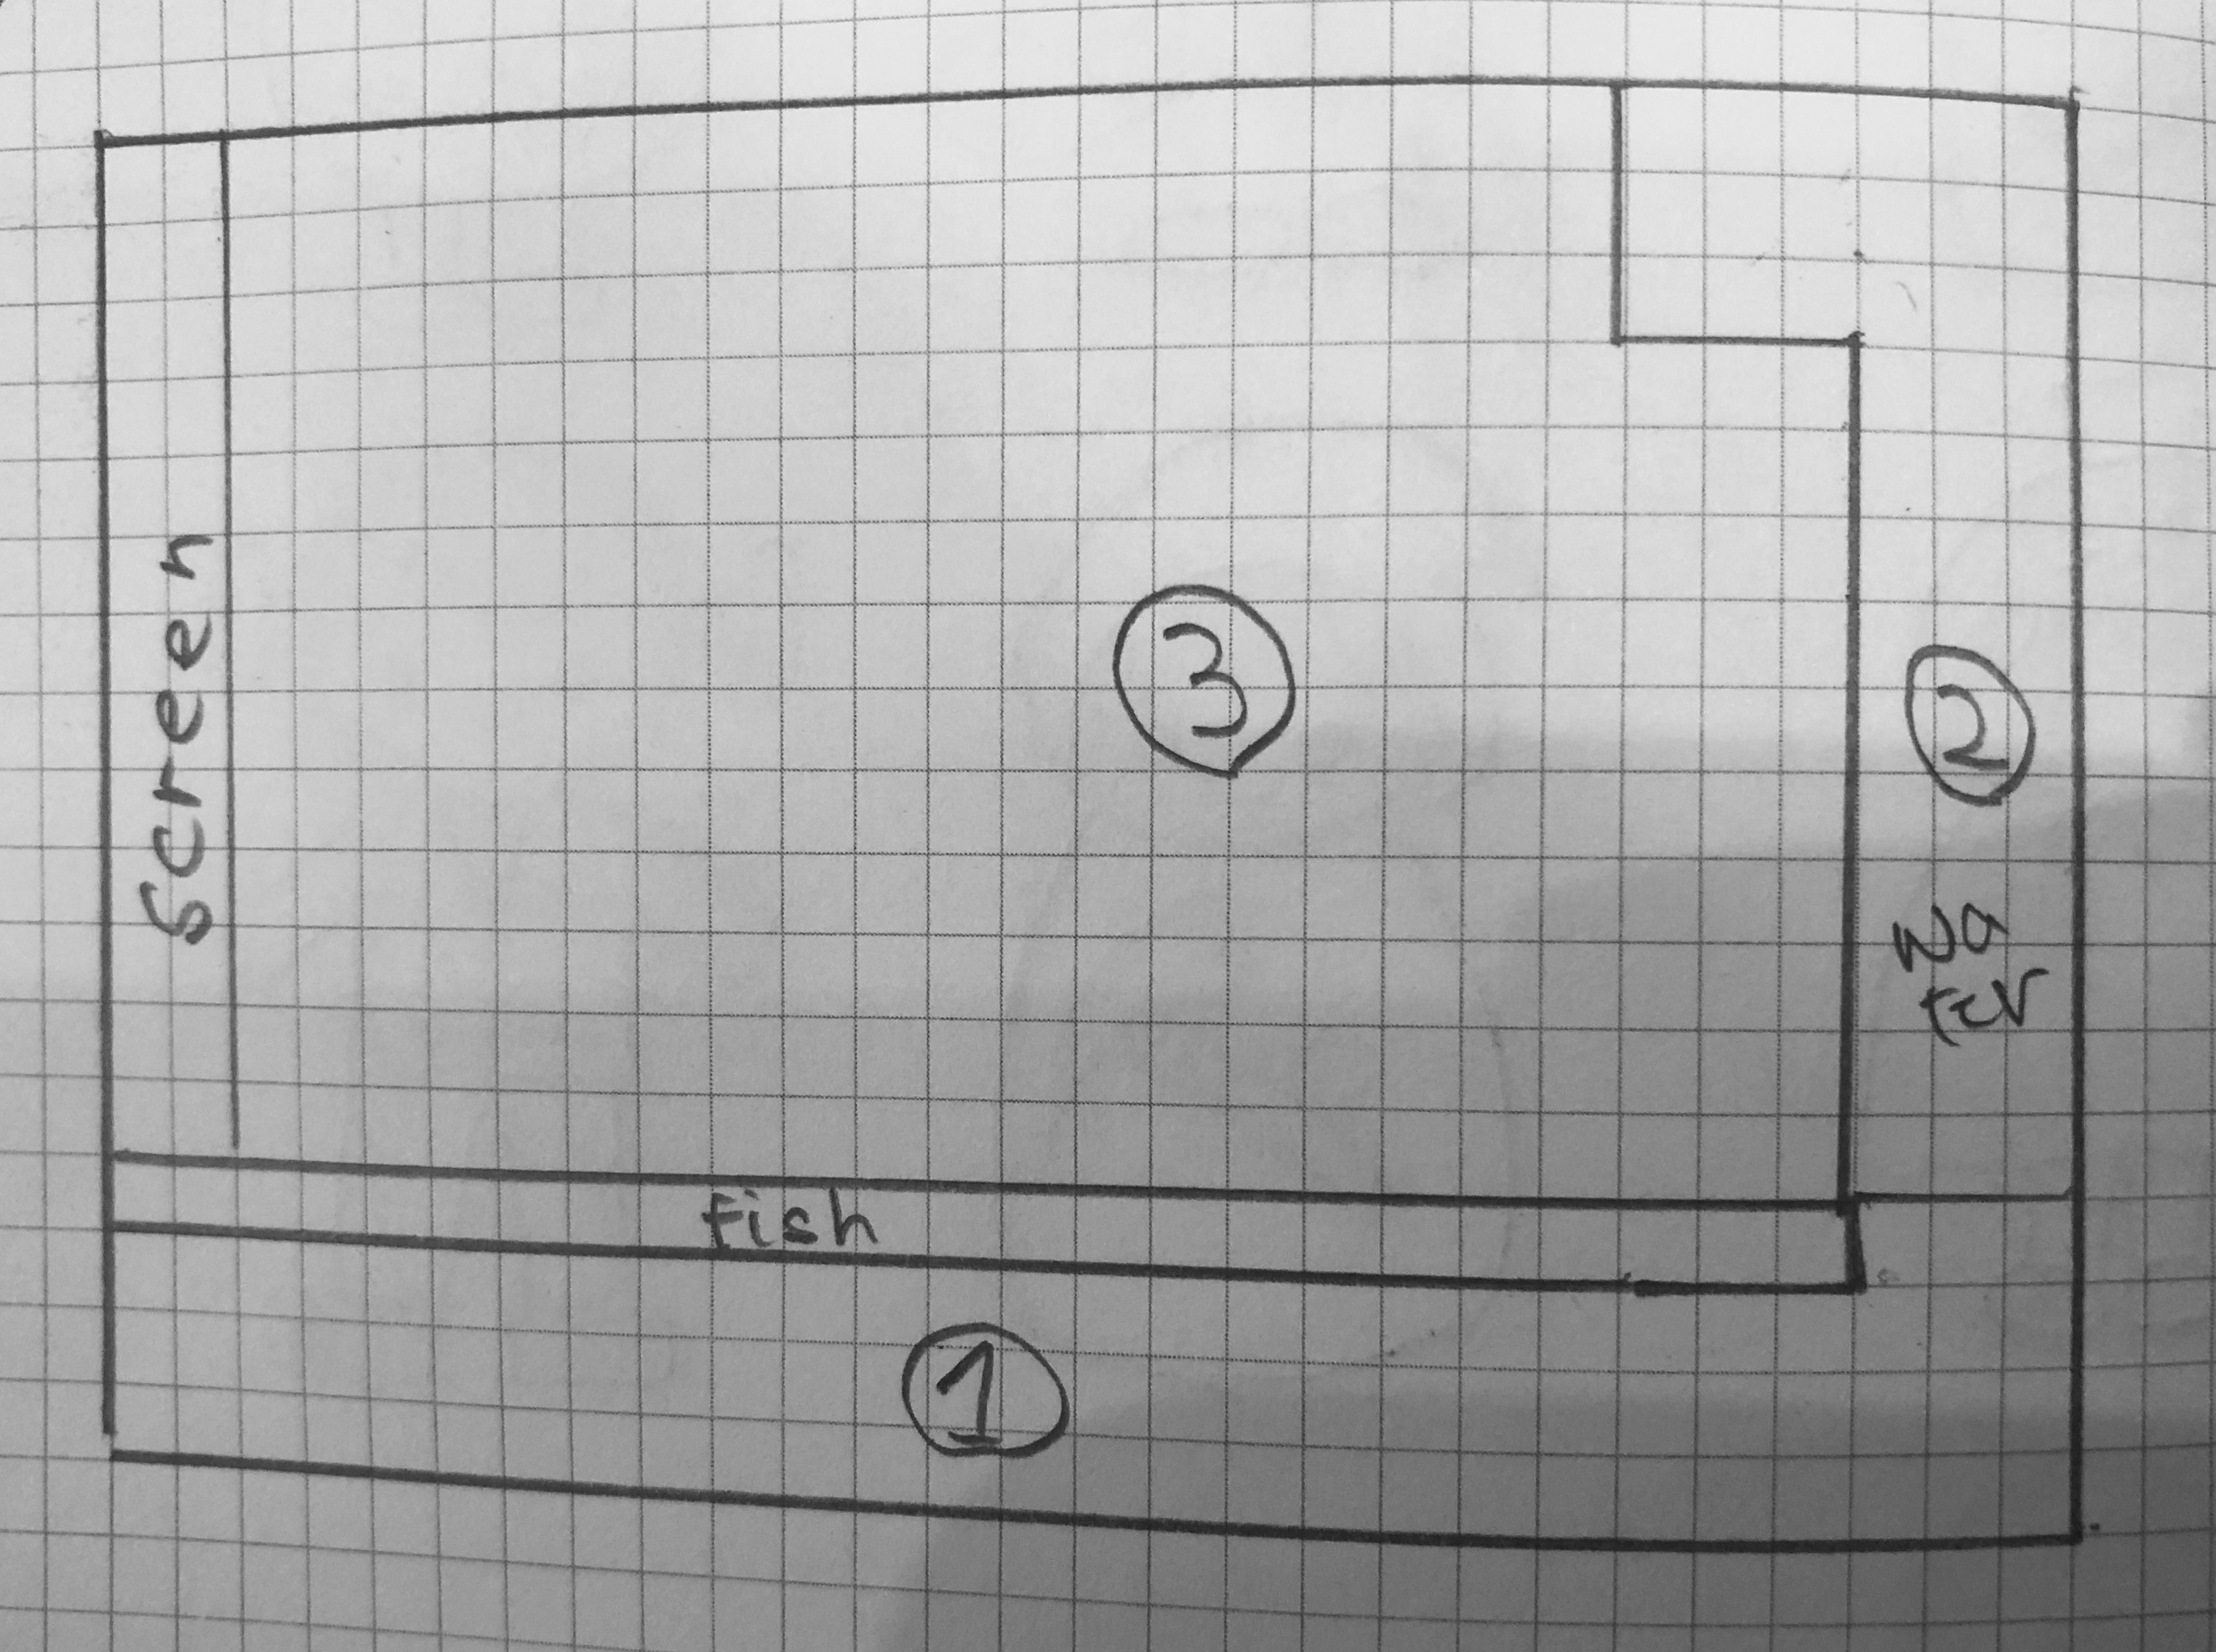 Screen
3
2
Wa
ter
Fish
1